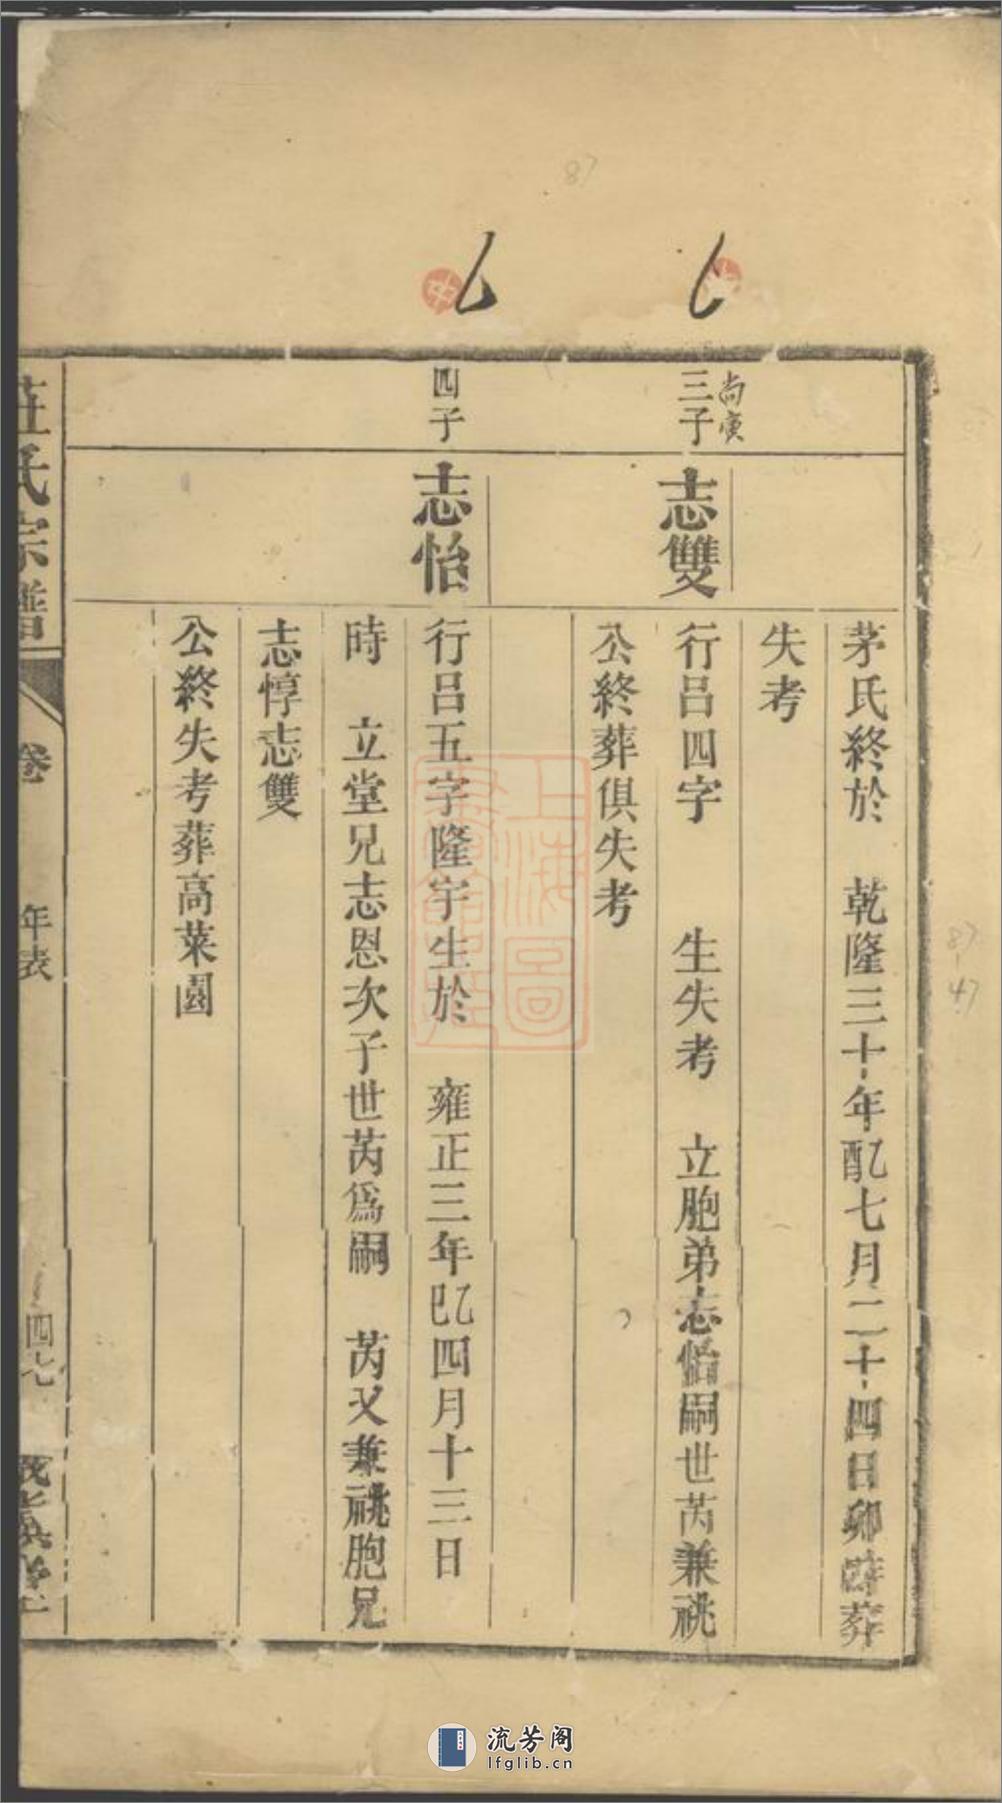 茅氏終於 乾隆三十年乙酉七月二十四日卯時葬
失考
尚賡
三子
志雙
行呂四字 生失考 立胞弟志怡嗣世芮兼祧
公終葬俱失考
四子
志怡
行呂五字隆宇生於 雍正三年乙巳四月十三日
時 立堂兄志恩次子世芮為嗣 芮又兼祧胞兄
志惇志雙
公終失考葬高菜園
莊氏宗譜
卷 年表 四七
上海圖書館藏
87
87-47
流芳阁
lfglib.cn